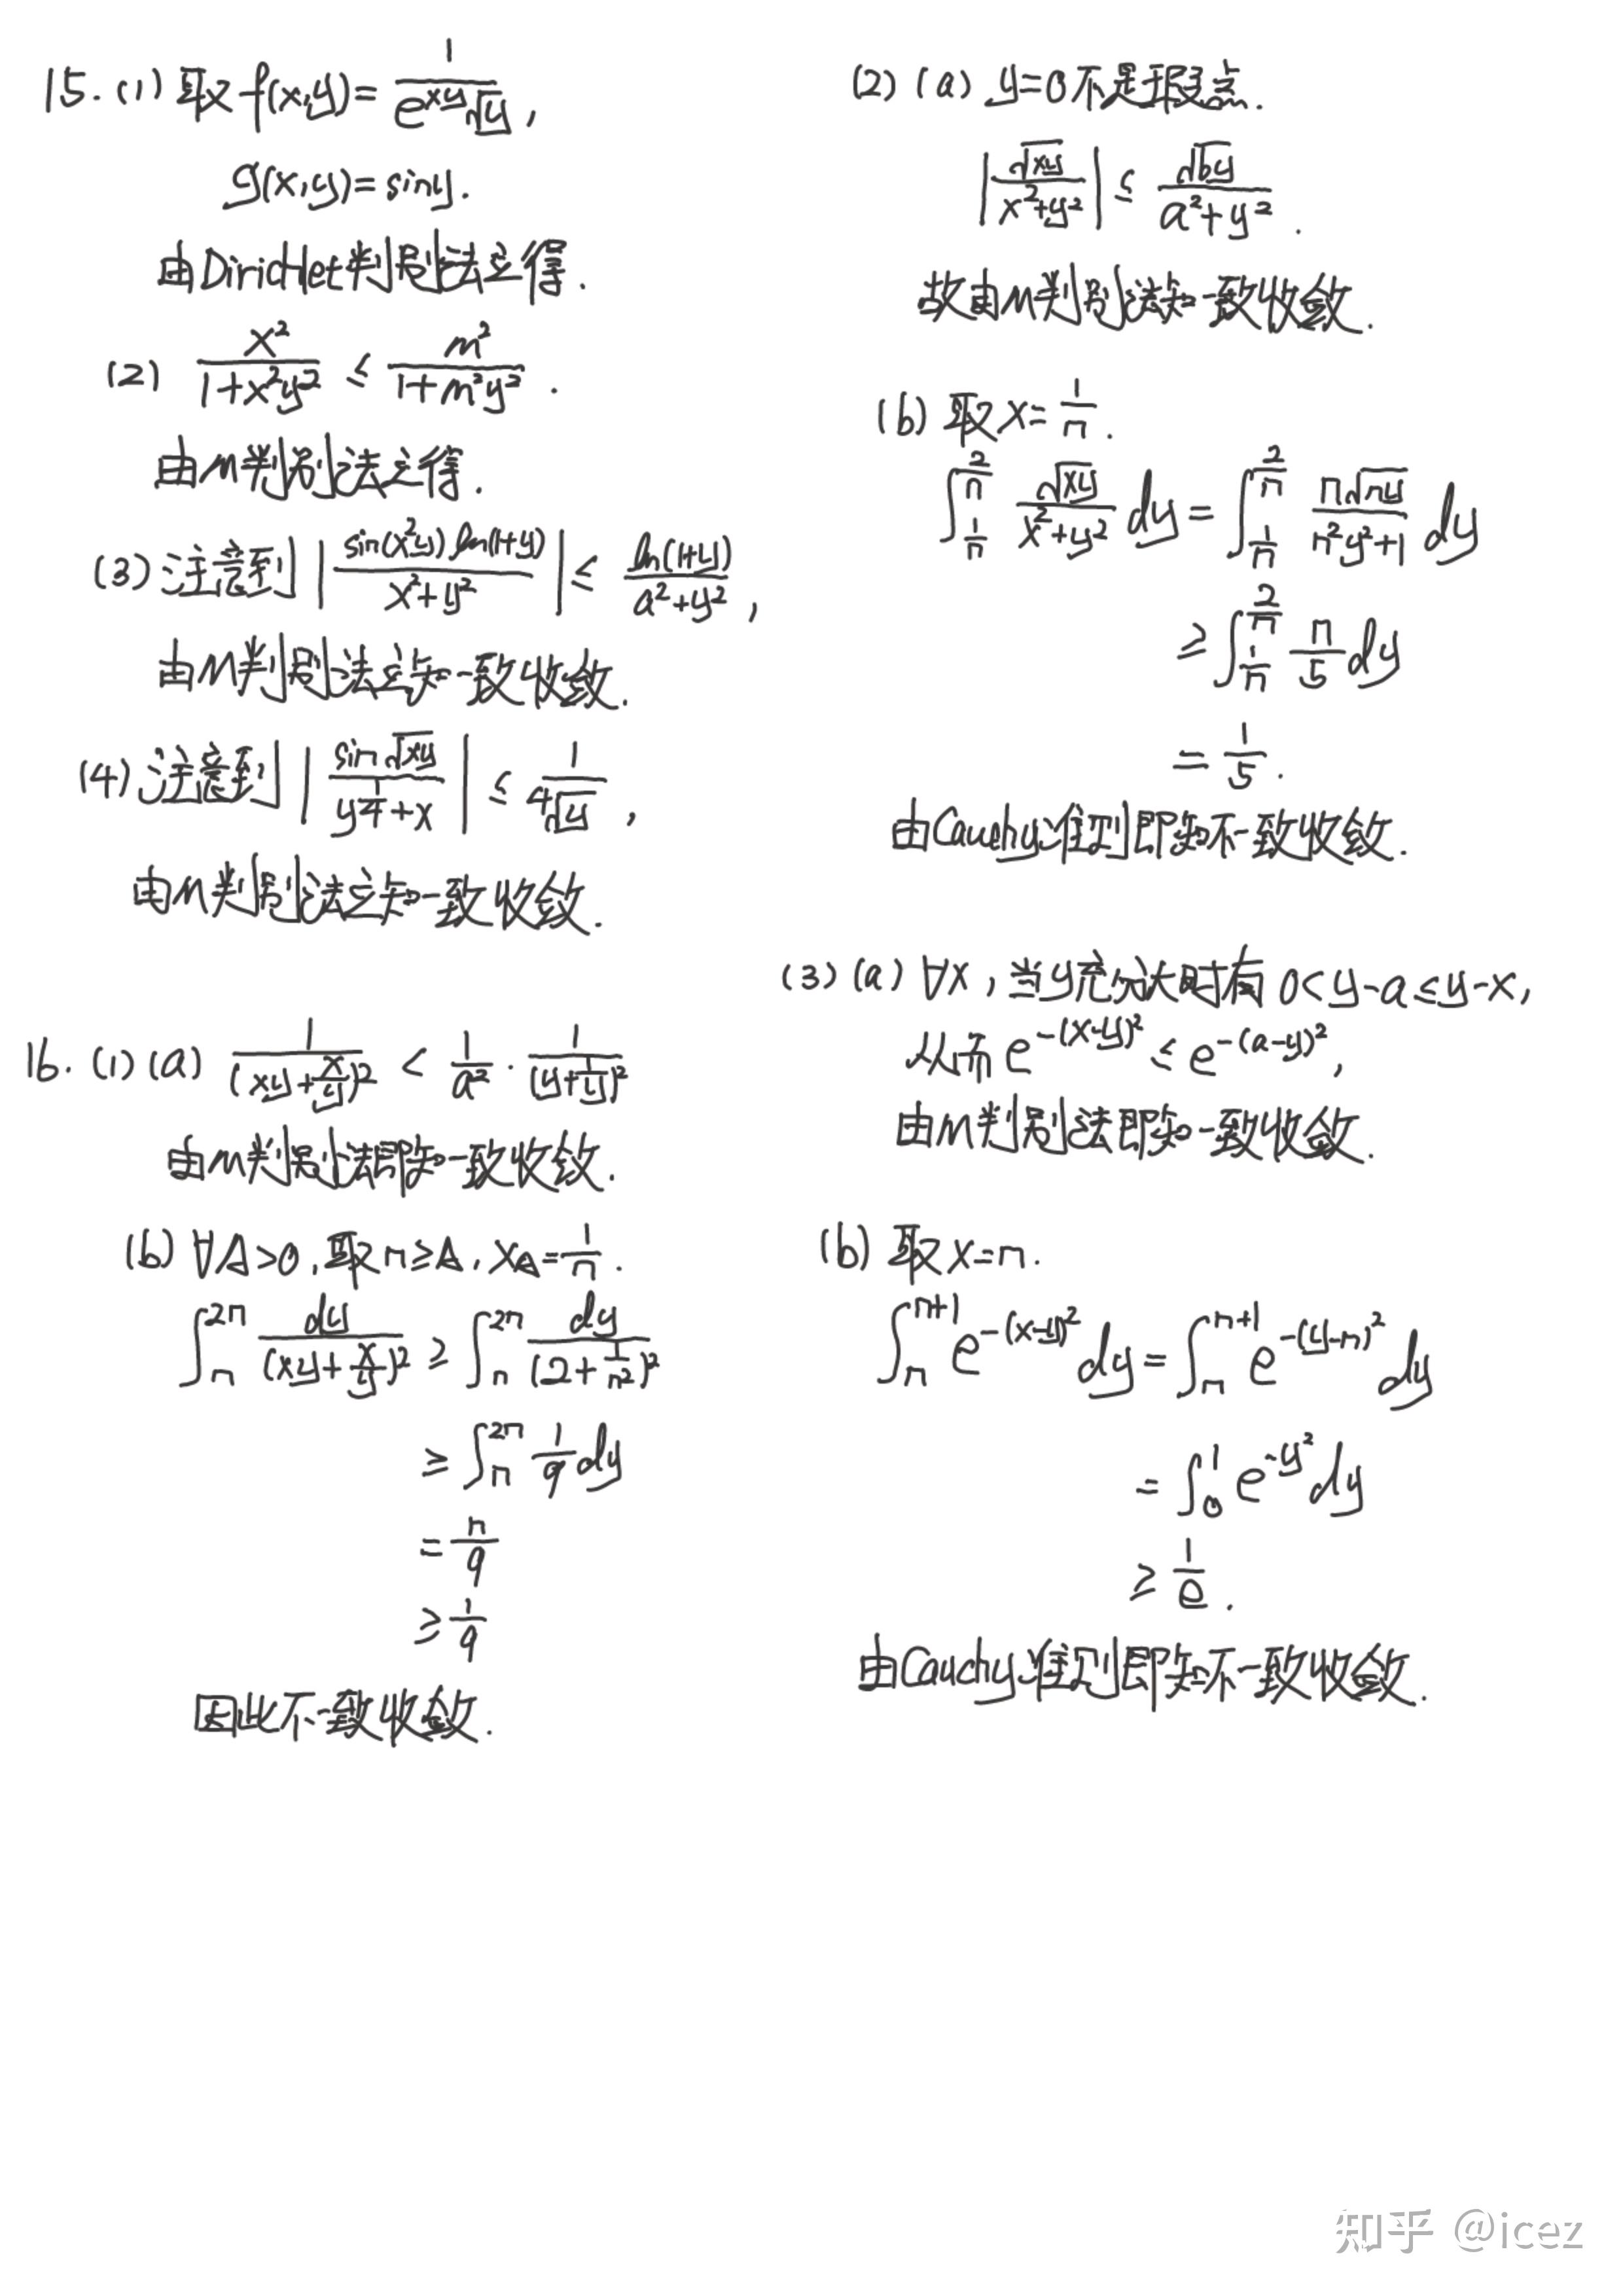 15. (1) 取 f(x,y) = 1/(e^{xy}√y),
g(x,y) = siny.
由Dirichlet判别法立得.
(2) x²/(1+x²y²) ≤ m²/(1+m²y²).
由M判别法立得.
(3) 注意到 |sin(x²y) ln(1+y)/(x²+y²)| ≤ ln(1+y)/(a²+y²),
由M判别法立知一致收敛.
(4) 注意到 |sin√(xy)/(y^{1/4}+x)| ≤ 1/(4√y),
由M判别法立知一致收敛.
16. (1) (a) 1/(xy+x/y)² < 1/a² · 1/(y+1/y)²
由M判别法即知一致收敛.
(b) ∀A>0, 取n≥A, x_A=1/n.
∫_n^{2n} dy/(xy+x/y)² ≥ ∫_n^{2n} dy/(2+1/n²)²
≥ ∫_n^{2n} 1/9 dy
= n/9
≥ 1/9
因此不一致收敛.
(2) (a) y=0不是瑕点.
|√(xy)/(x²+y²)| ≤ √(by)/(a²+y²).
故由M判别法知一致收敛.
(b) 取x=1/n.
∫_{1/n}^{2/n} √(xy)/(x²+y²) dy = ∫_{1/n}^{2/n} n√(ny)/(n²y²+1) dy
≥ ∫_{1/n}^{2/n} n/5 dy
= 1/5.
由Cauchy准则即知不一致收敛.
(3) (a) ∀x, 当y充分大时有 0<y-a≤y-x,
从而 e^{-(x-y)²} ≤ e^{-(a-y)²},
由M判别法即知一致收敛.
(b) 取x=n.
∫_n^{n+1} e^{-(x-y)²} dy = ∫_n^{n+1} e^{-(y-n)²} dy
= ∫_0^1 e^{-y²} dy
≥ 1/e.
由Cauchy准则即知不一致收敛.
知乎 @icez